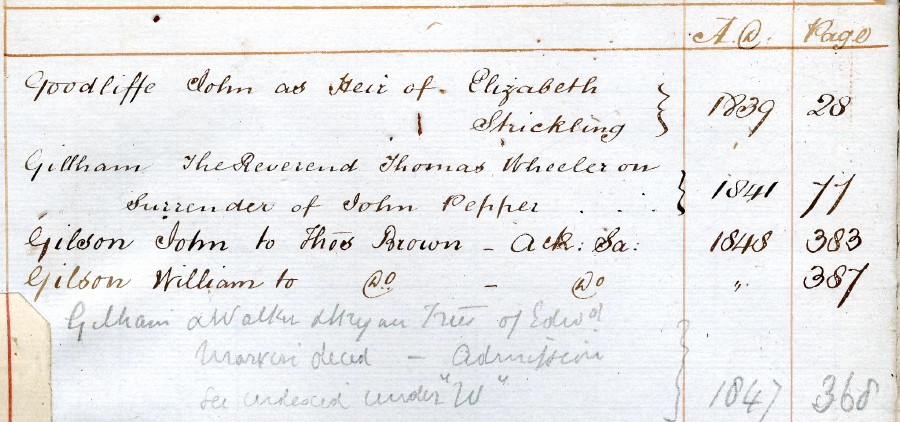 A.D. Page
Goodliffe John as Heir of Elizabeth
Strickling } 1839 28
Gillham The Reverend Thomas Wheeler on
Surrender of John Pepper . . . . } 1841 77
Gilson John to Thos Brown – Ack: Sa: 1848 383
Gilson William to Do – Do " 387
Gilham & Walker Trees of Edwd
decd – Admission
see indexed under "W" } 1847 368